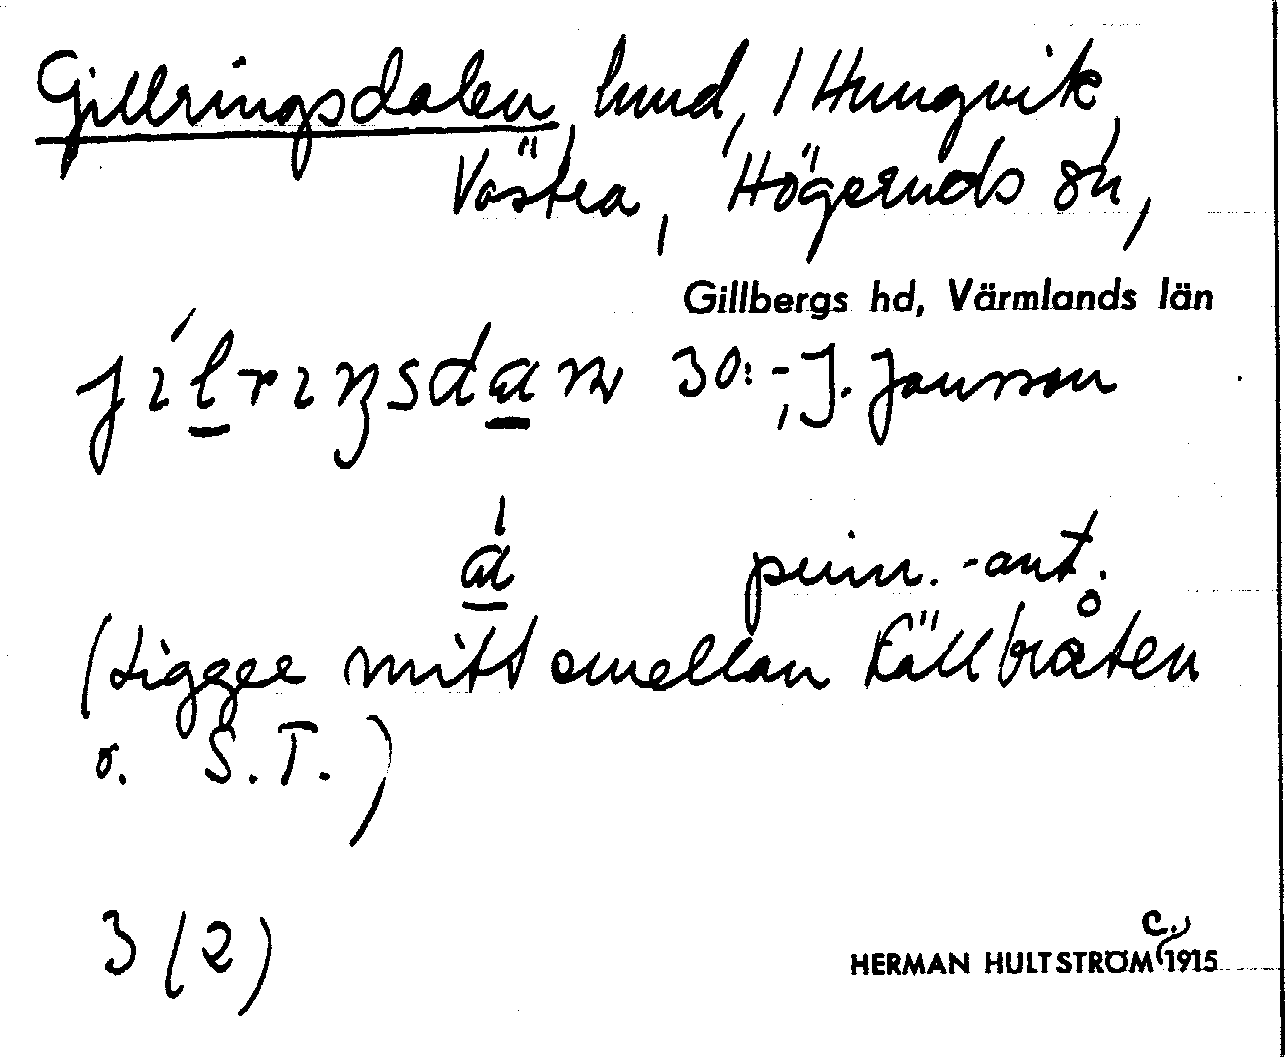 Gillringsdalen, hmd, 1 Hungvik,
Västra, Högeruds sn,
Gillbergs hd, Värmlands län
30:-, J. Jansson
prim. -ant.
(Ligger mitt emellan Källbråten
o. S.T.)
3 (2)
HERMAN HULTSTRÖM c. 1915